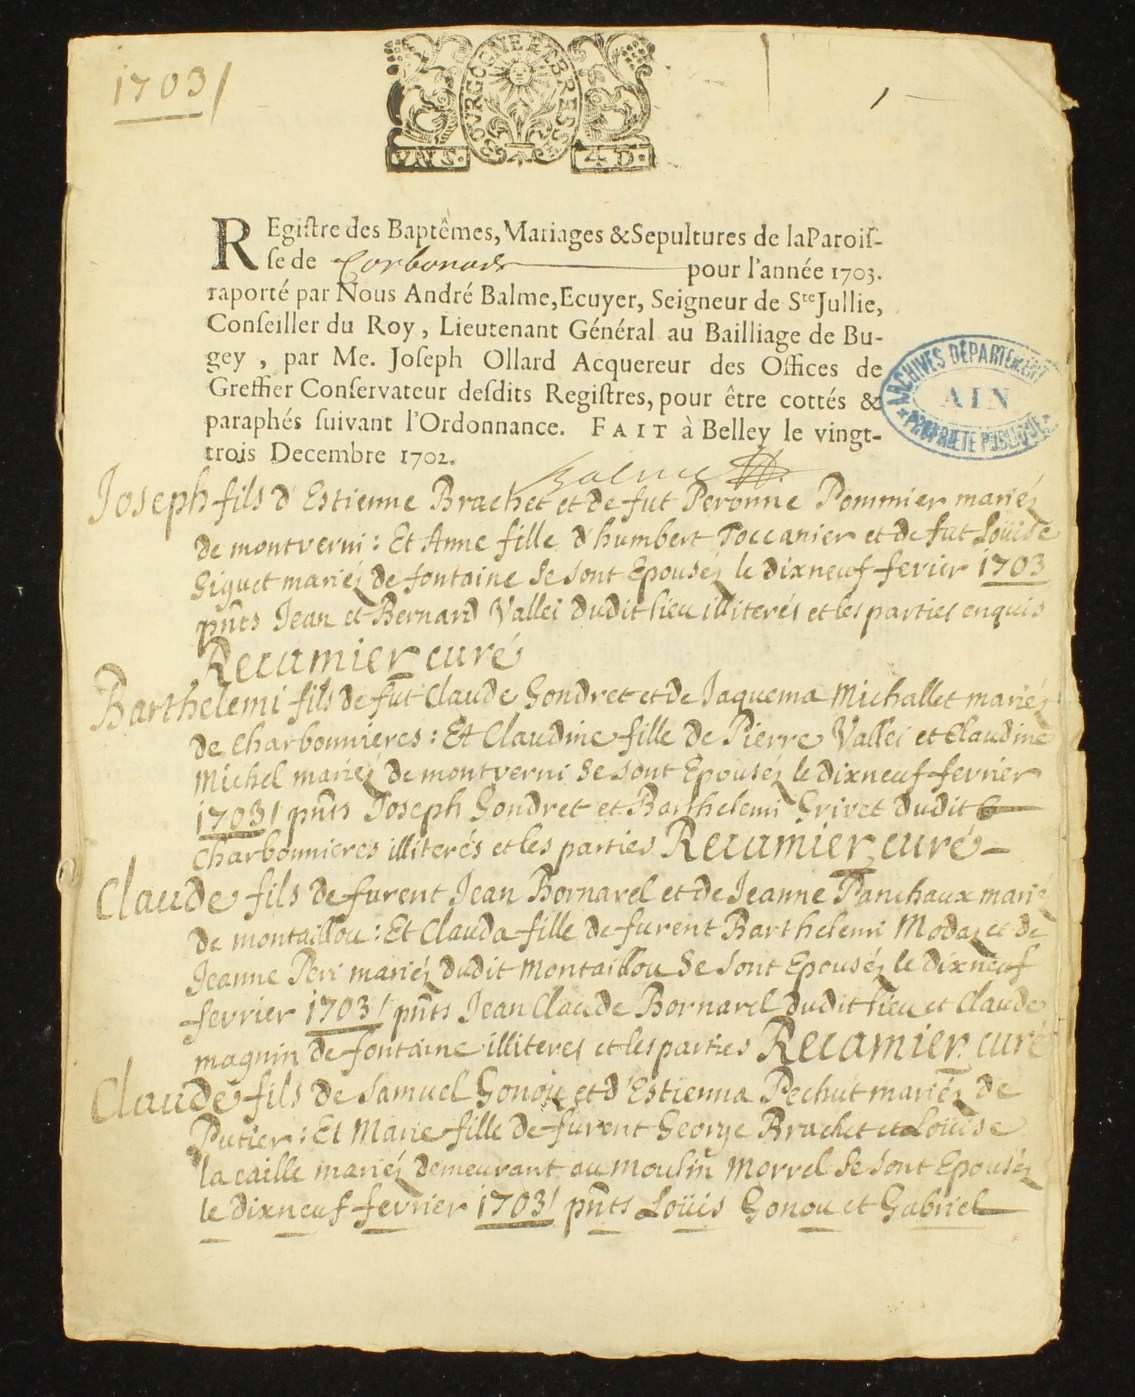 1703/
BOURGOGNE ET BRESSE
VN S. 4. D.
REgiſtre des Baptêmes, Mariages & Sepultures de la Paroiſ-
ſe de Corbonod pour l'année 1703.
raporté par Nous André Balme, Ecuyer, Seigneur de Ste Jullie,
Conſeiller du Roy, Lieutenant Général au Bailliage de Bu-
gey, par Me. Joſeph Ollard Acquereur des Offices de
Greffier Conſervateur deſdits Regiſtres, pour être cottés &
paraphés ſuivant l'Ordonnance. FAIT à Belley le vingt-
trois Decembre 1702.
Balme
ARCHIVES DÉPARTEMENT
AIN
PROPRIÉTÉ PUBLIQUE
Joseph fils d'Estienne Brachet et de fut Peronne Pommier mariéz
de montverni : Et Anne fille d'humbert Toccanier et de fut Loüise
Giguet mariéz de fontaine se sont Epousez le dixneuf fevier 1703
pnts Jean et Bernard Vallei dudit lieu illiterés et les parties enquis
Recamier curé
Barthelemi fils de fut Claude Gondret et de Jaquema Michallet mariéz
de Charbonnieres : Et Claudine fille de Pierre Vallei et Claudine
Michel mariéz de montverni se sont Epouséz le dixneuf fevrier
1703/ pnts Joseph Gondret et Barthelemi Grivet dudit
Charbonnieres illiterés et les parties Recamier curé
Claude fils de furent Jean Bornarel et de Jeanne Panchaux marié
de montaillou : Et Clauda fille de furent Barthelemi Modaz et de
Jeanne Peri mariéz dudit Montaillou se sont Epouséz le dixneuf
fevrier 1703/ pnts Jean Claude Bornarel dudit lieu et Claude
magnin de fontaine illiteres et les parties Recamier curé
Claude fils de Samuel Gonou et d'Estienna Pechut mariéz de
Putier : Et Marie fille de furent George Brachet et Loüise
la caille mariéz demeurant au moulin Morrel se sont Epouséz
le dixneuf fevrier 1703/ pnts Loüis Gonou et Gabriel